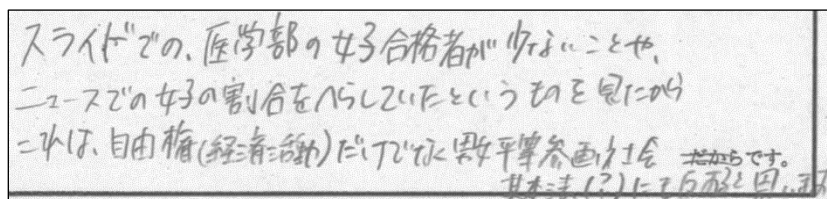 スライドでの、医学部の女子合格者が少ないことや、
ニュースでの女子の割合をへらしていたというものを見たから
これは、自由権(経済活動)だけでなく男女平等参画社会 だからです。
基本法(?)にも反すると思います